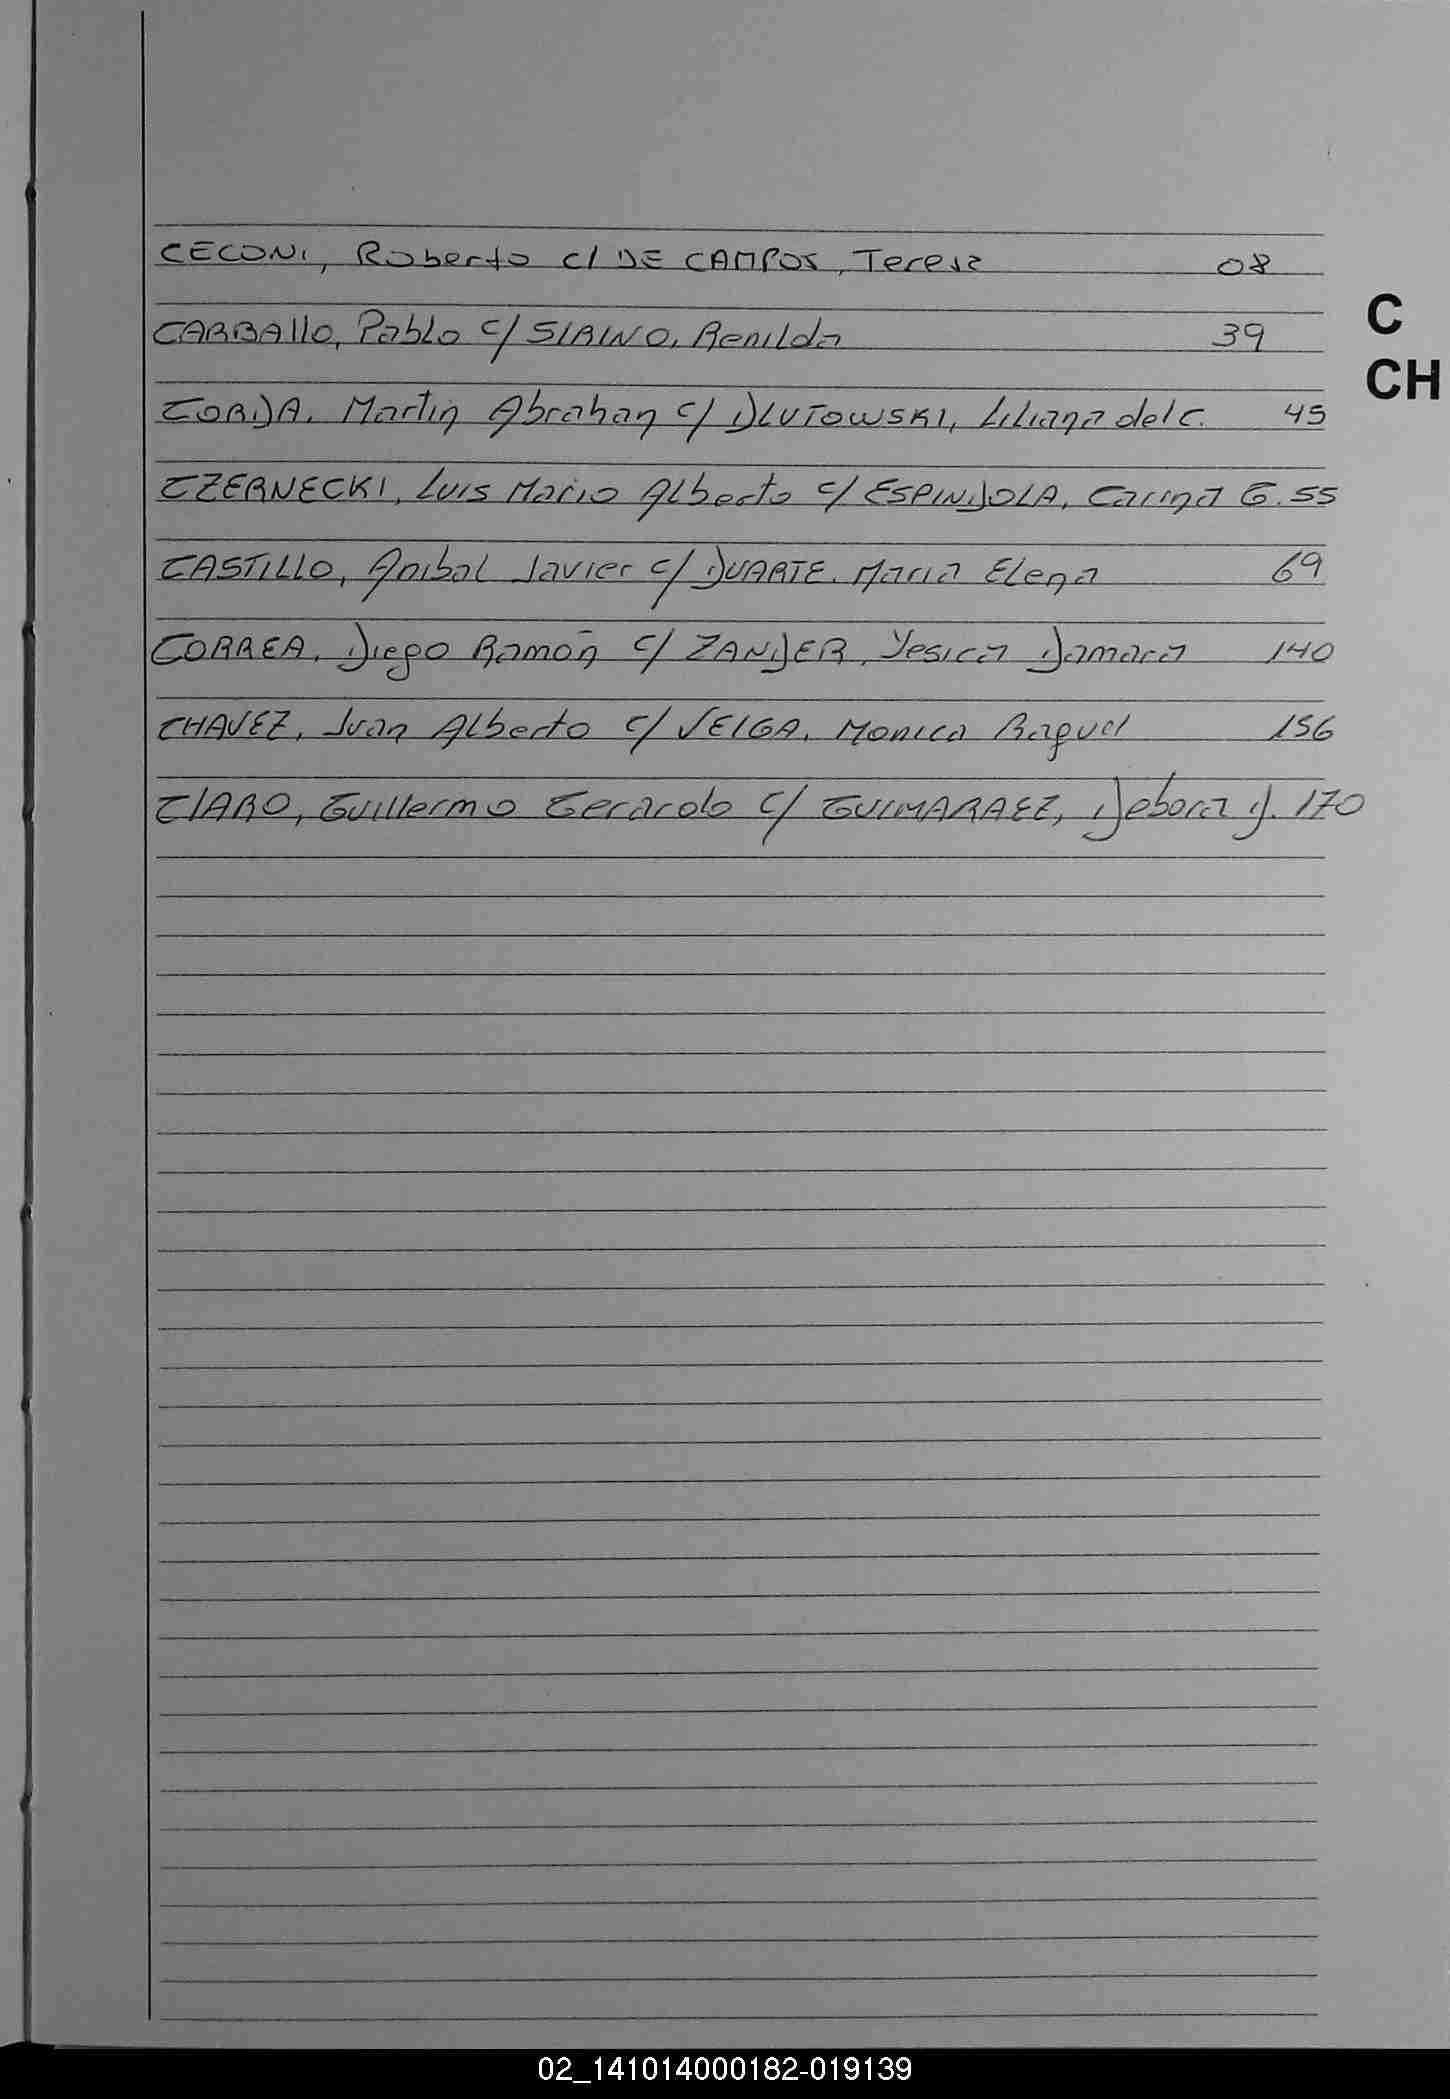 CECONI, Roberto c/ DE CAMPOS, Teresa 08
CARBAllO, Pablo c/ SIRINO, Renilda 39
CORDA, Martin Abrahan c/ DLUTOWSKI, Liliana del C. 45
CZERNECKI, Luis Mario Alberto c/ ESPINDOLA, Carina G. 55
CASTILLO, Anibal Javier c/ DUARTE, Maria Elena 69
CORREA, Diego Ramón c/ ZANDER, Yesica Damara 140
CHAVEZ, Juan Alberto c/ VEIGA, Monica Raquel 156
ClARO, Guillermo Gerardo c/ GUIMARAEZ, Debora D. 170
C
CH
02_141014000182-019139